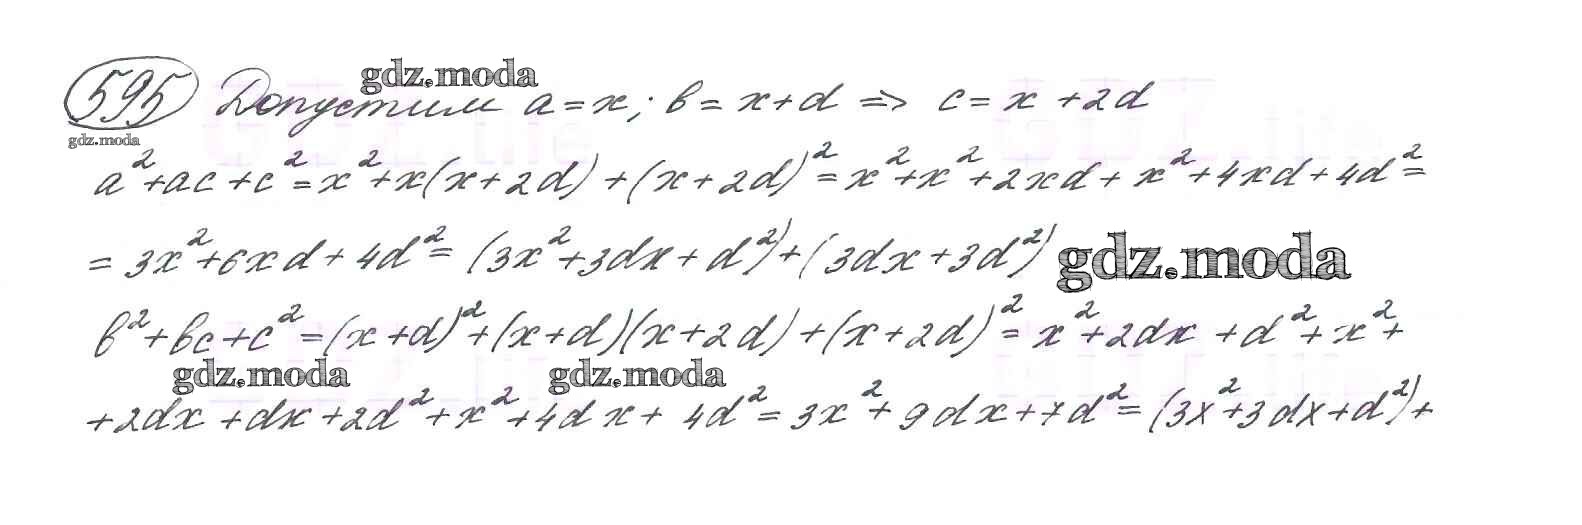 gdz.moda
595 Допустим a = x; b = x + d => c = x + 2d
gdz.moda
a² + ac + c² = x² + x(x + 2d) + (x + 2d)² = x² + x² + 2xd + x² + 4xd + 4d² =
= 3x² + 6xd + 4d² = (3x² + 3dx + d²) + (3dx + 3d²)
gdz.moda
b² + bc + c² = (x + d)² + (x + d)(x + 2d) + (x + 2d)² = x² + 2dx + d² + x² +
gdz.moda gdz.moda
+ 2dx + dx + 2d² + x² + 4dx + 4d² = 3x² + 9dx + 7d² = (3x² + 3dx + d²) +